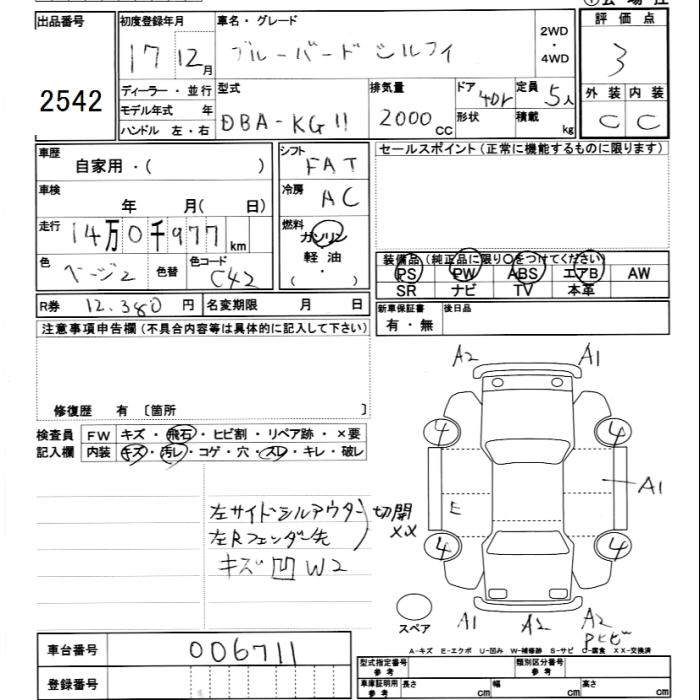 出品番号 初度登録年月 車名・グレード 評価点
2542 17 12月 ブルーバードシルフィ 2WD・4WD 3
ディーラー・並行 型式 排気量 ドア 40r 定員 5人 外装 内装
モデル年式 年 DBA-KG11 2000CC 形状 積載 kg C C
ハンドル 左・右
車歴 自家用・( ) シフト FAT セールスポイント(正常に機能するものに限ります)
車検 年 月( 日) 冷房 AC
走行 14万0千977km 燃料 ガソリン 軽油・( )
色 ベージ2 色替 色コード C42 装備品(純正品に限り○をつけてください)
PS PW ABS エアB AW
SR ナビ TV 本革
R券 12,380円 名変期限 月 日 新車保証書 有・無 後日品
注意事項申告欄(不具合内容等は具体的に記入して下さい)
修復歴 有 〔箇所 〕
検査員 FW キズ・飛石・ヒビ割・リペア跡・×要
記入欄 内装 キズ・汚レ・コゲ・穴・スレ・キレ・破レ
A2 A1
4 4
E A1
4 4
左サイドシルアウター
左Rフェンダー先 切開××
キズ凹W2
スペア A1 A2 A2
Pヒビ
A-キズ E-エクボ U-凹み W-補修跡 S-サビ C-腐食 XX-交換済
車台番号 006711 型式指定番号 参考 類別区分番号 参考
登録番号 車庫証明用 参考 長さ cm 幅 cm 高さ cm